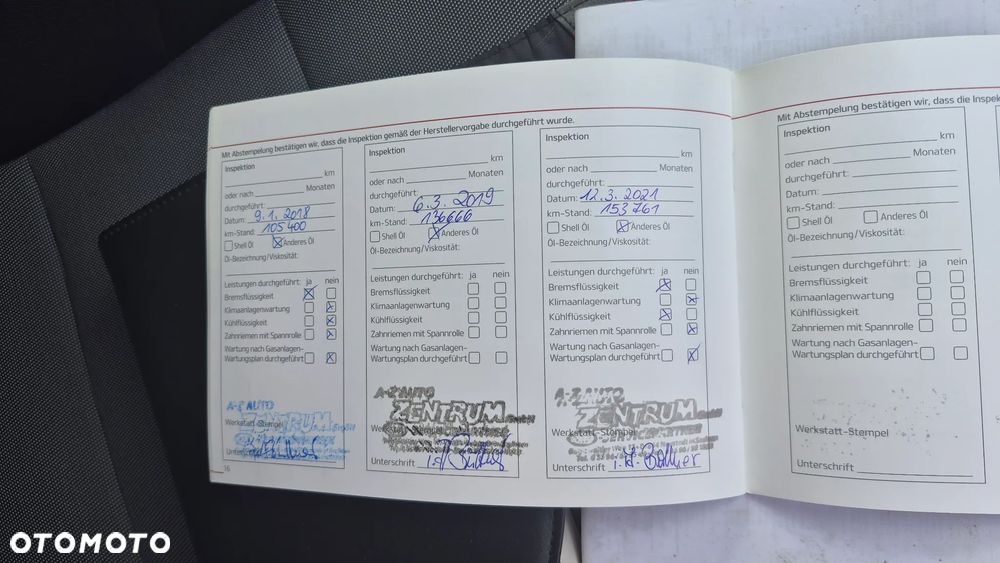 Mit Abstempelung bestätigen wir, dass die Inspektion gemäß der Herstellervorgabe durchgeführt wurde.
Inspektion
km
oder nach Monaten
durchgeführt:
Datum: 9.1.2018
km-Stand: 105 400
Shell Öl Anderes Öl
Öl-Bezeichnung/Viskosität:
Leistungen durchgeführt: ja nein
Bremsflüssigkeit
Klimaanlagenwartung
Kühlflüssigkeit
Zahnriemen mit Spannrolle
Wartung nach Gasanlagen-
Wartungsplan durchgeführt
A-Z AUTO
ZENTRUM
Werkstatt-Stempel
16
Inspektion
km
oder nach Monaten
durchgeführt:
Datum: 6.3.2019
km-Stand: 136666
Shell Öl Anderes Öl
Öl-Bezeichnung/Viskosität:
Leistungen durchgeführt: ja nein
Bremsflüssigkeit
Klimaanlagenwartung
Kühlflüssigkeit
Zahnriemen mit Spannrolle
Wartung nach Gasanlagen-
Wartungsplan durchgeführt
A-Z AUTO
ZENTRUM GmbH
Unterschrift
Inspektion
km
oder nach Monaten
durchgeführt:
Datum: 12.3.2021
km-Stand: 153 761
Shell Öl Anderes Öl
Öl-Bezeichnung/Viskosität:
Leistungen durchgeführt: ja nein
Bremsflüssigkeit
Klimaanlagenwartung
Kühlflüssigkeit
Zahnriemen mit Spannrolle
Wartung nach Gasanlagen-
Wartungsplan durchgeführt
A-Z AUTO
ZENTRUM GmbH
Werkstatt-Stempel
Unterschrift
Mit Abstempelung bestätigen wir, dass die Inspektion
Inspektion
km
oder nach Monaten
durchgeführt:
Datum:
km-Stand:
Shell Öl Anderes Öl
Öl-Bezeichnung/Viskosität:
Leistungen durchgeführt: ja nein
Bremsflüssigkeit
Klimaanlagenwartung
Kühlflüssigkeit
Zahnriemen mit Spannrolle
Wartung nach Gasanlagen-
Wartungsplan durchgeführt
Werkstatt-Stempel
Unterschrift
OTOMOTO